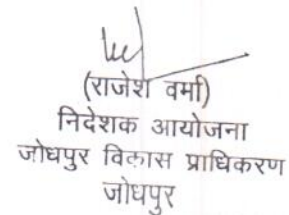 (राजेश वर्मा)
निदेशक आयोजना
जोधपुर विकास प्राधिकरण
जोधपुर